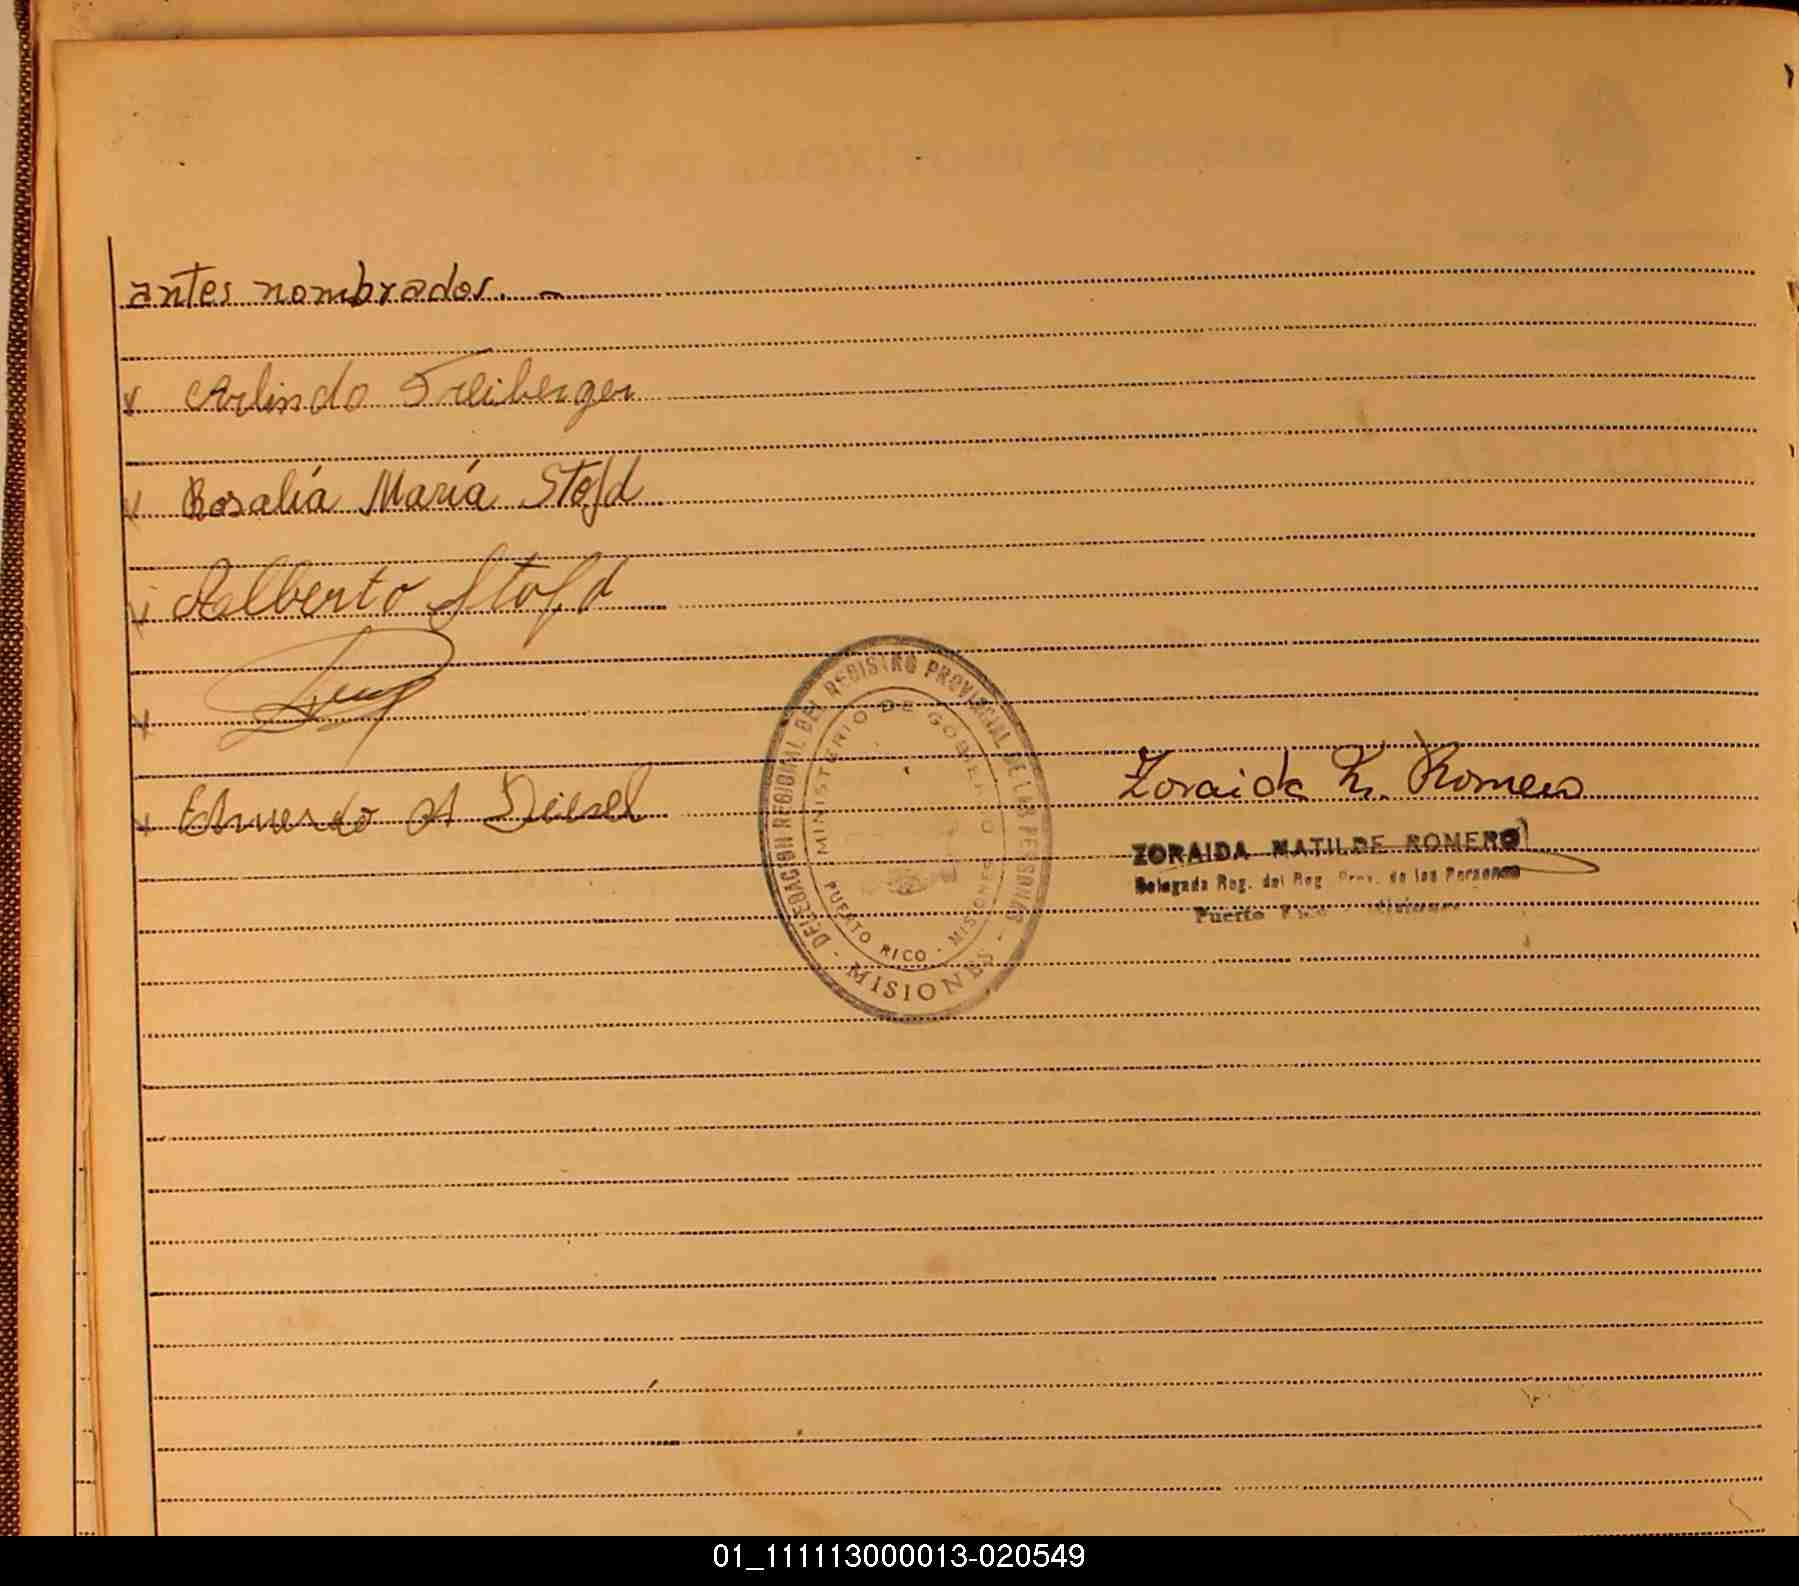 antes nombrados. -
x Arlindo Freiberger
x Rosalía María Stofd
x Adelberto Stofd
x
x Eduuerdo A Diesel
DELEGACION REGIONAL DEL REGISTRO PROVINCIAL DE LAS PERSONAS
- MISIONES -
MINISTERIO DE GOBIERNO
PUERTO RICO - MISIONES
Zoraida M. Romero
ZORAIDA MATILDE ROMERO
Delegada Reg. del Reg. Prov. de las Personas
Puerto Rico - Misiones
01_111113000013-020549